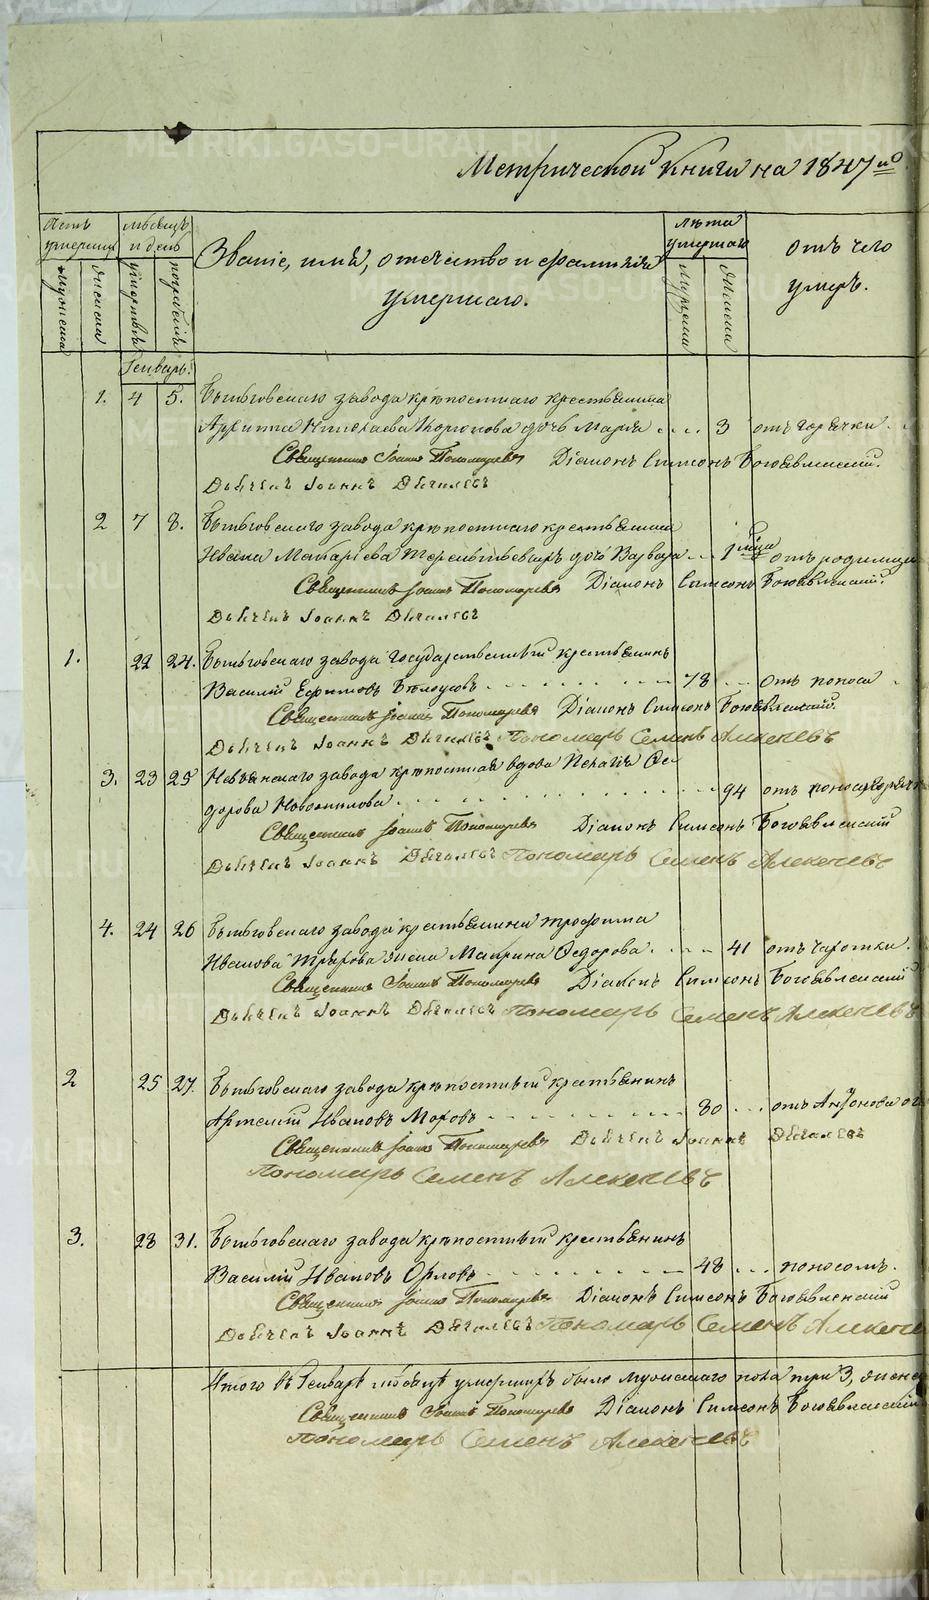 METRIKI.GASO-URAL.RU
Метрической Книги на 1847й
Счетъ умершихъ
мѣсяцъ и день
Званіе, имя, отчество и фамилія умершаго.
лѣта умершаго
отъ чего умеръ.
мужеска
женска
смерти
погребенія
мужеска
женска
Генварь.
1. 4 5. Бынговскаго завода крѣпостнаго крестьянина
Архиппа Николаева дочь Марія .... 3 отъ горячки.
Священникъ Іоаннъ Пономаревъ Діаконъ Симеонъ Богоявленскій.
Дьячекъ Іоаннъ Дягилевъ
2 7 8. Бынговскаго завода крѣпостнаго крестьянина
Ивана Макарьева дочь Варвара .. 1 мѣсяца отъ родимца
Священникъ Іоаннъ Пономаревъ Діаконъ Симеонъ Богоявленскій
Дьячекъ Іоаннъ Дягилевъ
1. 22 24. Бынговскаго завода государственный крестьянинъ
Василій Ефимовъ Бѣлоусовъ 78 ... отъ поноса
Священникъ Іоаннъ Пономаревъ Діаконъ Симеонъ Богоявленскій.
Дьячекъ Іоаннъ Дягилевъ Пономарь Семенъ Алексеевъ
3. 23 25 Невьянскаго завода крѣпостная вдова Пелагія Ѳе-
дорова Новожилова 94 отъ поноса
Священникъ Іоаннъ Пономаревъ Діаконъ Симеонъ Богоявленскій
Дьячекъ Іоаннъ Дягилевъ Пономарь Семенъ Алексеевъ
4. 24 26 Бынговскаго завода крестьянина Трофима
Иванова жена Маврина Ѳедорова 41 отъ чахотки.
Священникъ Іоаннъ Пономаревъ Діаконъ Симеонъ Богоявленскій
Дьячекъ Іоаннъ Дягилевъ Пономарь Семенъ Алексеевъ
2 25 27. Бынговскаго завода крѣпостный крестьянинъ
Артемій Ивановъ Моховъ 80 ... отъ Антонова
Священникъ Іоаннъ Пономаревъ Дьячекъ Іоаннъ Дягилевъ
Пономарь Семенъ Алексеевъ
3. 28 31. Бынговскаго завода крѣпостный крестьянинъ
Василій Ивановъ Орловъ 48 ... поносомъ.
Священникъ Іоаннъ Пономаревъ Діаконъ Симеонъ Богоявленскій
Дьячекъ Іоаннъ Дягилевъ Пономарь Семенъ Алексеевъ
Итого въ Генварѣ мѣсяцѣ умершихъ было мужескаго пола три 3,
Священникъ Іоаннъ Пономаревъ Діаконъ Симеонъ Богоявленскій
Пономарь Семенъ Алексеевъ